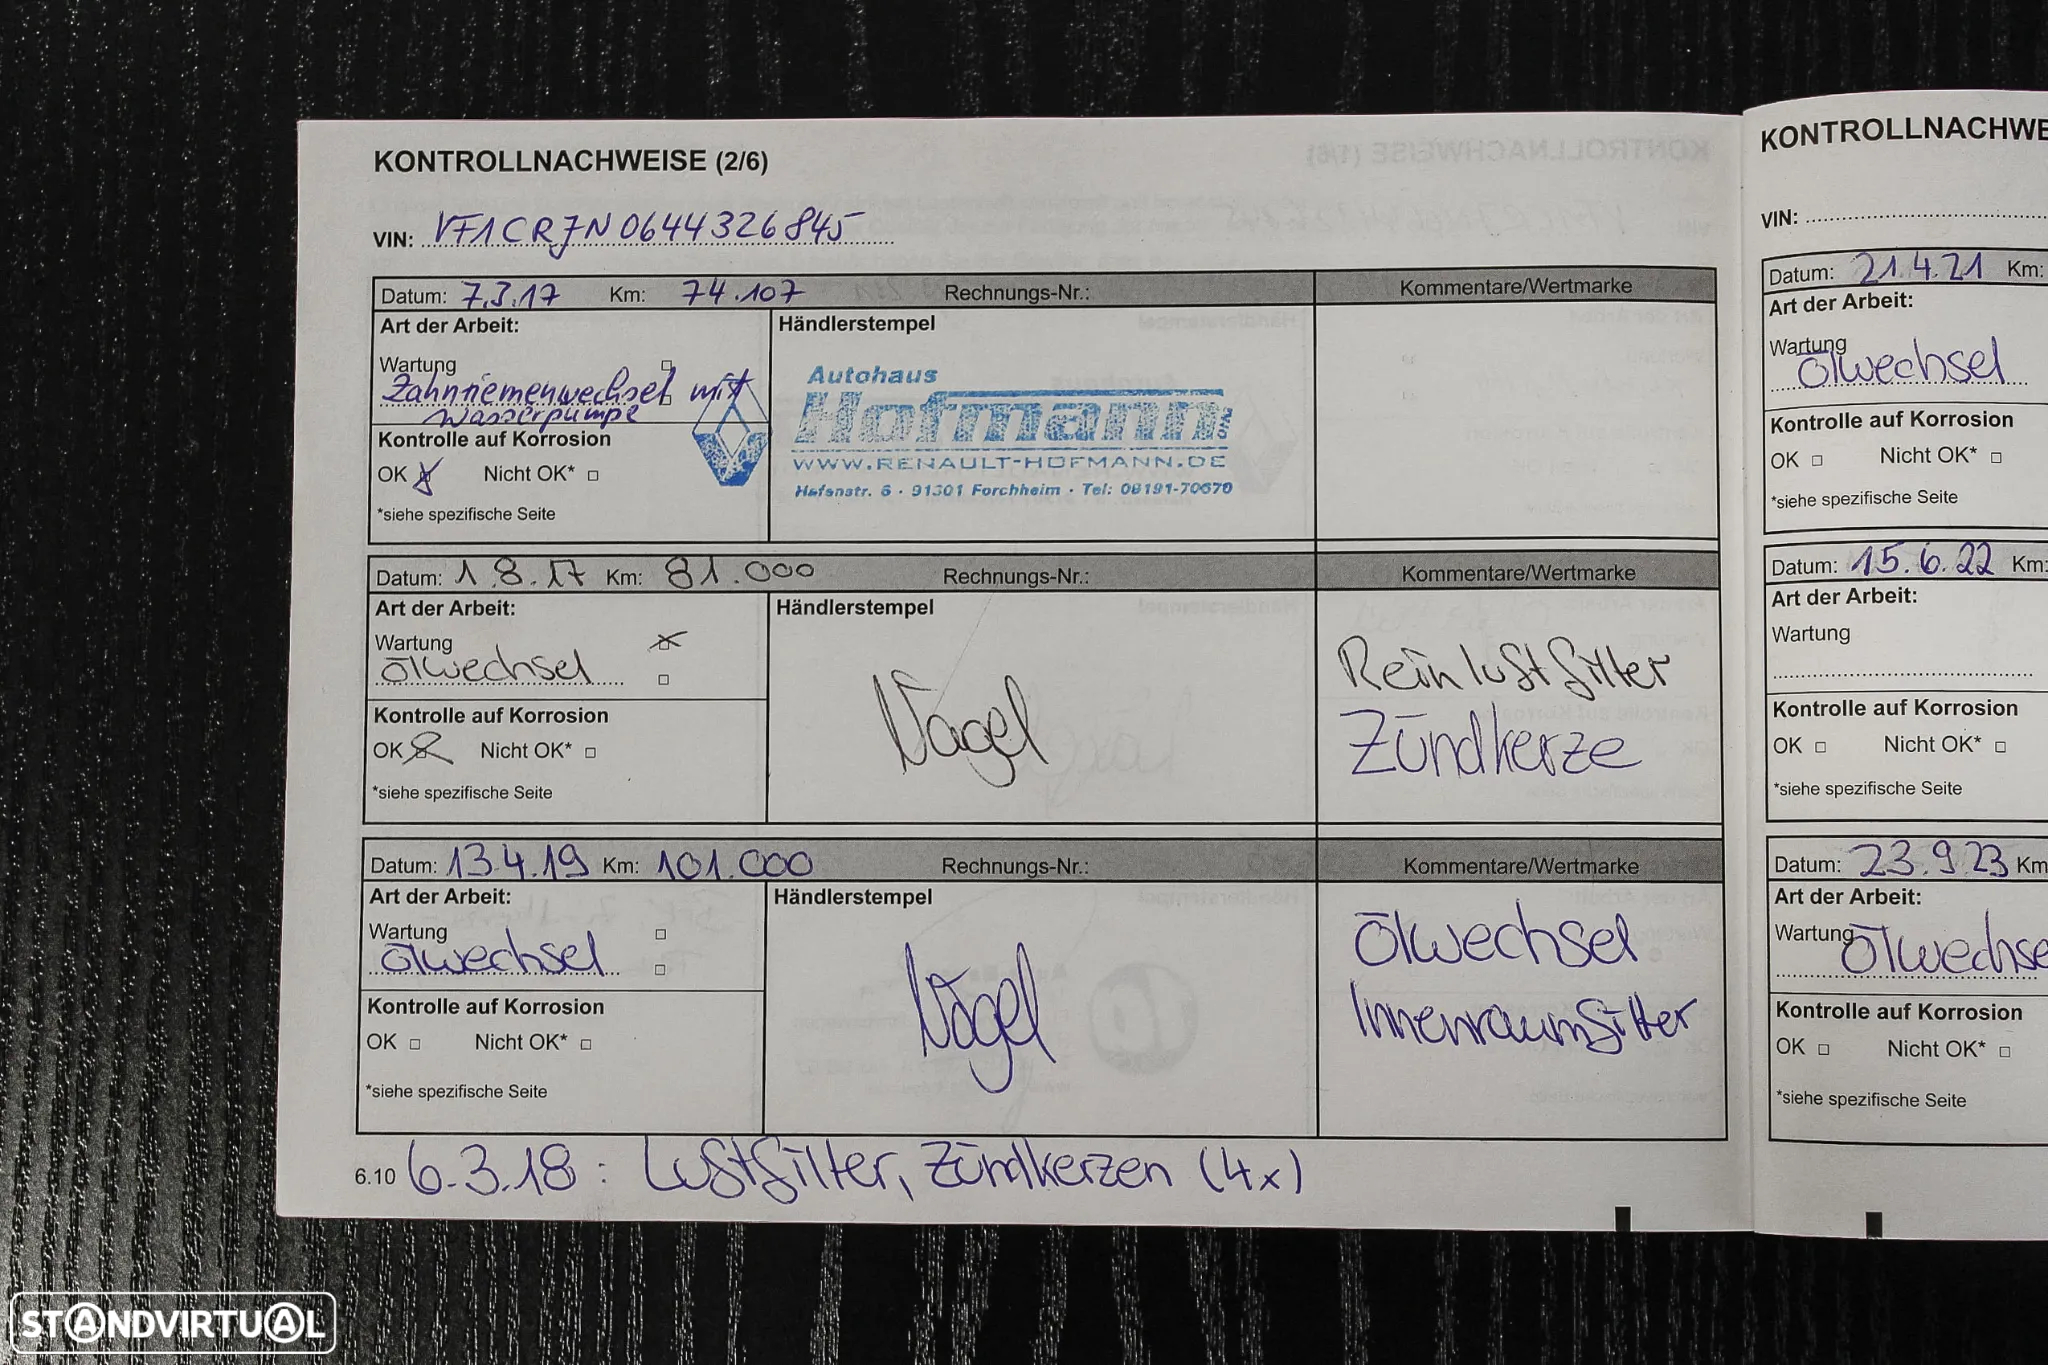 KONTROLLNACHWEISE (2/6)
VIN: VF1CR7N0644326845
Datum: 7.3.17 Km: 74.107 Rechnungs-Nr.: Kommentare/Wertmarke
Art der Arbeit: Händlerstempel
Wartung
Zahnriemenwechsel mit
Wasserpumpe
Autohaus
Hofmann
WWW.RENAULT-HOFMANN.DE
Hafenstr. 6 · 91301 Forchheim · Tel: 09191-70670
Kontrolle auf Korrosion
OK Nicht OK*
*siehe spezifische Seite
Datum: 1.8.17 Km: 81.000 Rechnungs-Nr.: Kommentare/Wertmarke
Art der Arbeit: Händlerstempel
Wartung
Ölwechsel
Nagel
Reinluftfilter
Zündkerze
Kontrolle auf Korrosion
OK Nicht OK*
*siehe spezifische Seite
Datum: 13.4.19 Km: 101.000 Rechnungs-Nr.: Kommentare/Wertmarke
Art der Arbeit: Händlerstempel
Wartung
Ölwechsel
Nagel
Ölwechsel
Innenraumfilter
Kontrolle auf Korrosion
OK Nicht OK*
*siehe spezifische Seite
6.10 6.3.18: Luftfilter, Zündkerzen (4x)
KONTROLLNACHWE
VIN:
Datum: 21.4.21 Km:
Art der Arbeit:
Wartung
Ölwechsel
Kontrolle auf Korrosion
OK Nicht OK*
*siehe spezifische Seite
Datum: 15.6.22 Km:
Art der Arbeit:
Wartung
Kontrolle auf Korrosion
OK Nicht OK*
*siehe spezifische Seite
Datum: 23.9.23 Km
Art der Arbeit:
Wartung
Ölwechse
Kontrolle auf Korrosion
OK Nicht OK*
*siehe spezifische Seite
STANDVIRTUAL